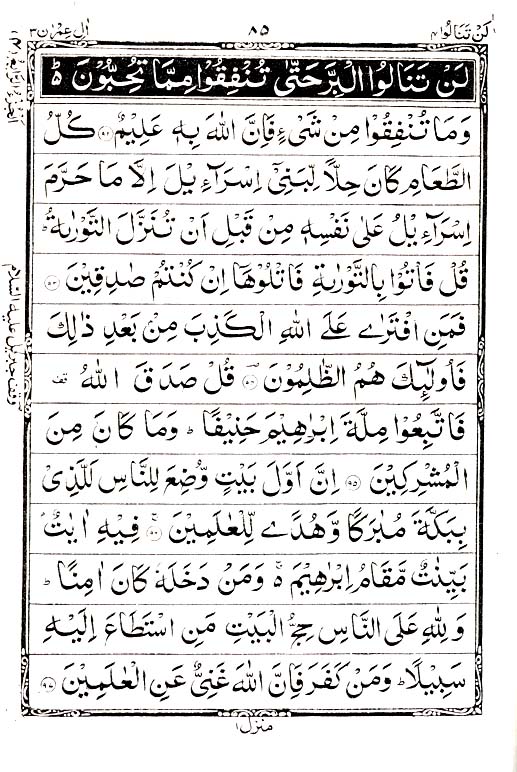 لَنْ تَنَالُوا ٤
٨٥
اٰلِ عِمْرٰن ٣
لَنْ تَنَالُوا الْبِرَّ حَتّٰى تُنْفِقُوْا مِمَّا تُحِبُّوْنَ ؕ
وَمَا تُنْفِقُوْا مِنْ شَیْءٍ فَاِنَّ اللّٰهَ بِهٖ عَلِیْمٌ ﴿٩٢﴾ كُلُّ
الطَّعَامِ كَانَ حِلًّا لِّبَنِیْۤ اِسْرَآءِیْلَ اِلَّا مَا حَرَّمَ
اِسْرَآءِیْلُ عَلٰی نَفْسِهٖ مِنْ قَبْلِ اَنْ تُنَزَّلَ التَّوْرٰىةُ ؕ
قُلْ فَاْتُوْا بِالتَّوْرٰىةِ فَاتْلُوْهَاۤ اِنْ كُنْتُمْ صٰدِقِیْنَ ﴿٩٣﴾
فَمَنِ افْتَرٰی عَلَی اللّٰهِ الْكَذِبَ مِنْۢ بَعْدِ ذٰلِكَ
فَاُولٰٓئِكَ هُمُ الظّٰلِمُوْنَ ﴿٩٤﴾ قُلْ صَدَقَ اللّٰهُ قف
فَاتَّبِعُوْا مِلَّةَ اِبْرٰهِیْمَ حَنِیْفًا ؕ وَمَا كَانَ مِنَ
الْمُشْرِكِیْنَ ﴿٩٥﴾ اِنَّ اَوَّلَ بَیْتٍ وُّضِعَ لِلنَّاسِ لَلَّذِیْ
بِبَكَّةَ مُبٰرَكًا وَّهُدًی لِّلْعٰلَمِیْنَ ﴿٩٦﴾ فِیْهِ اٰیٰتٌۢ
بَیِّنٰتٌ مَّقَامُ اِبْرٰهِیْمَ ۚ۬ وَمَنْ دَخَلَهٗ كَانَ اٰمِنًا ؕ
وَلِلّٰهِ عَلَی النَّاسِ حِجُّ الْبَیْتِ مَنِ اسْتَطَاعَ اِلَیْهِ
سَبِیْلًا ؕ وَمَنْ كَفَرَ فَاِنَّ اللّٰهَ غَنِیٌّ عَنِ الْعٰلَمِیْنَ ﴿٩٧﴾
منزل ١
الجزء الرابع (٤)
وقف جبریل علیه السلام